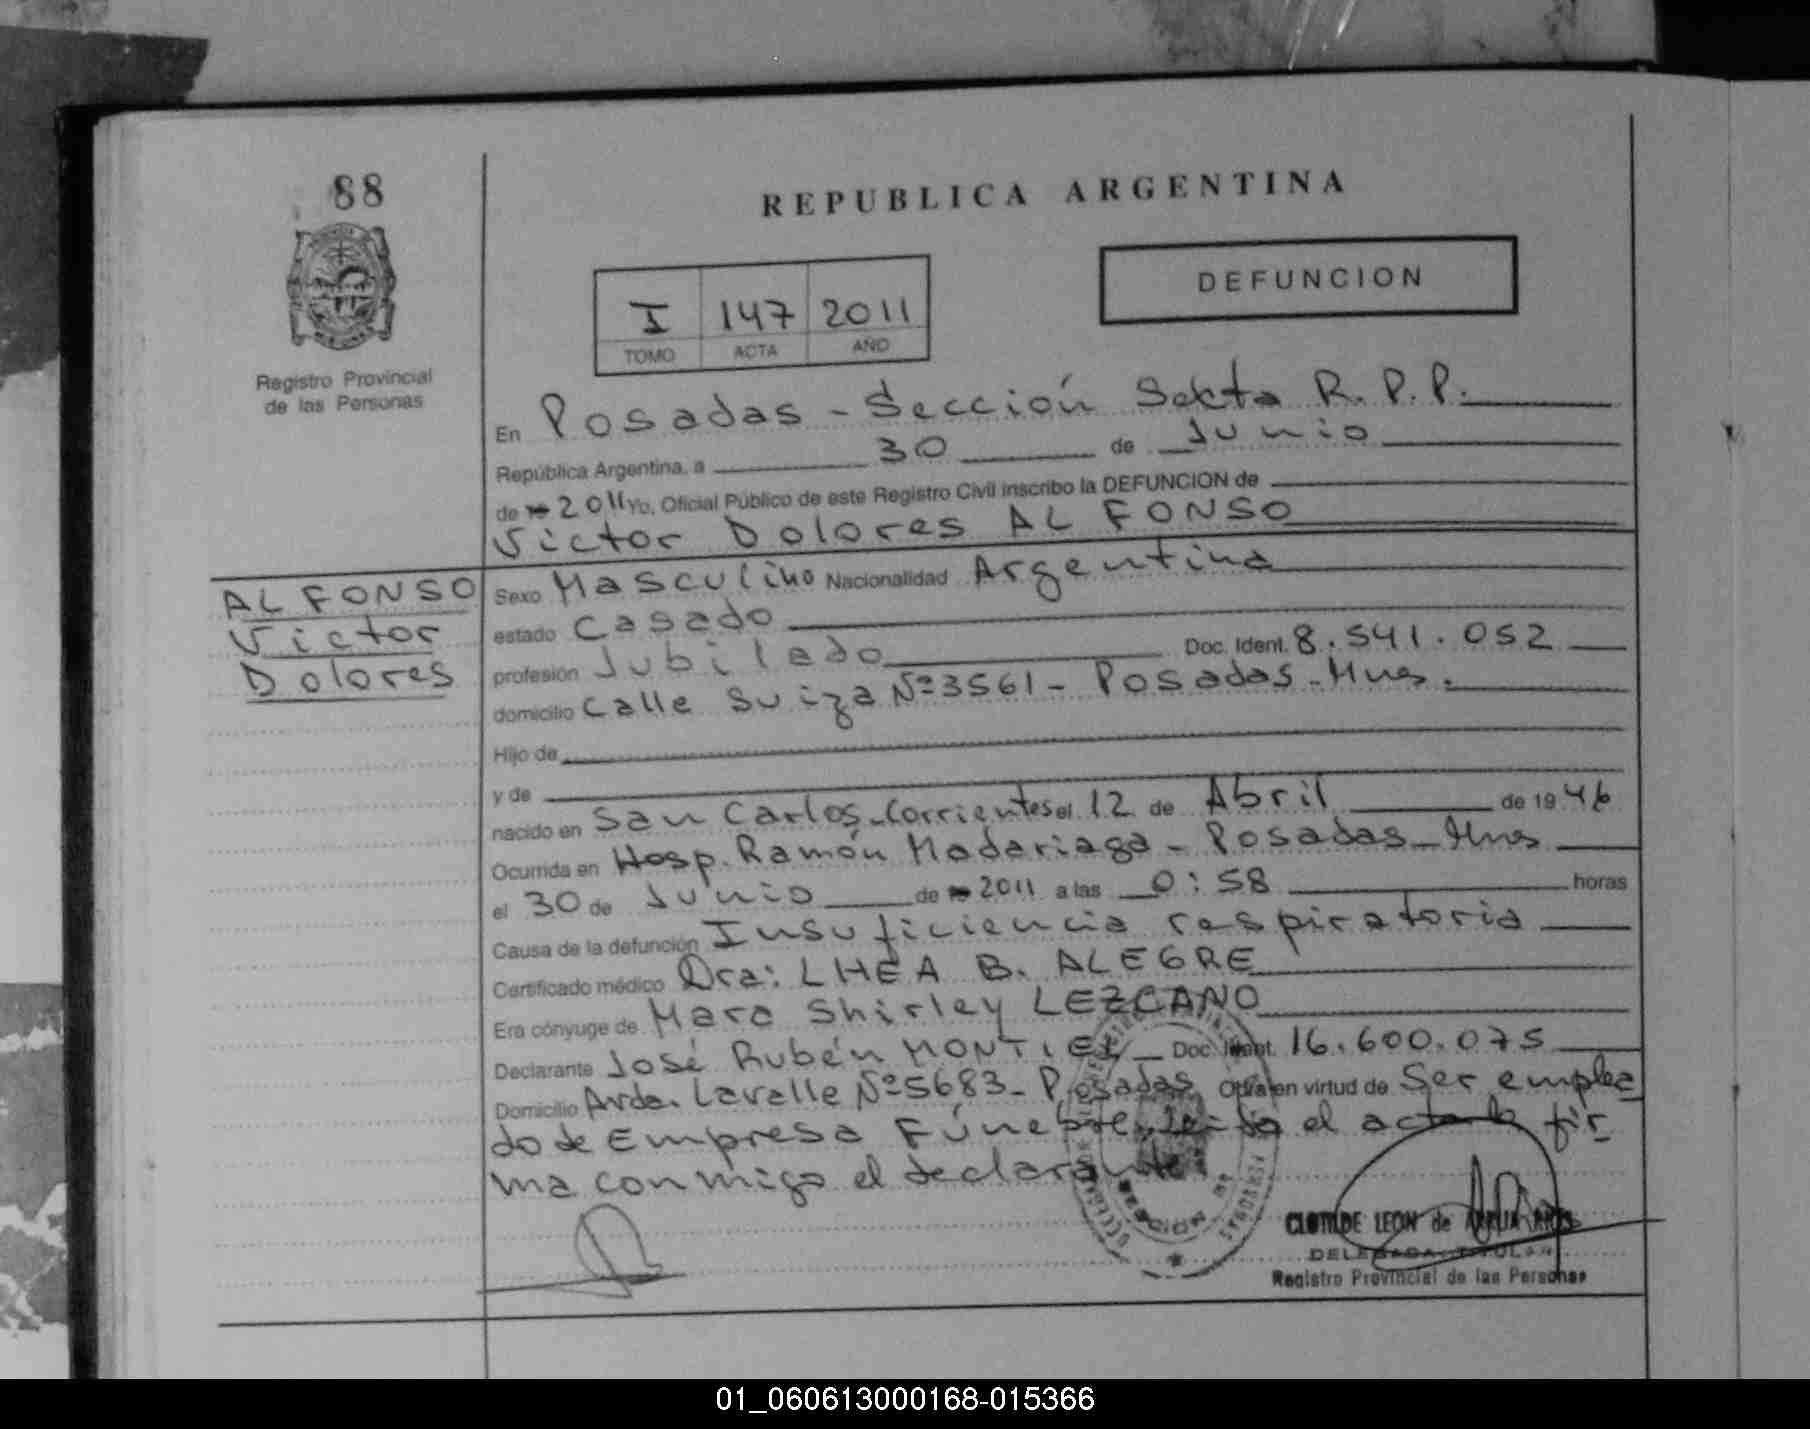 88
REPUBLICA ARGENTINA
DEFUNCION
I 147 2011
TOMO ACTA AÑO
Registro Provincial
de las Personas
En Posadas - Sección Sexta R.P.P.
República Argentina, a 30 de Junio
de 2011 Yo, Oficial Público de este Registro Civil inscribo la DEFUNCION de
Victor Dolores ALFONSO
ALFONSO
Victor
Dolores
Sexo Masculino Nacionalidad Argentina
estado Casado
profesión Jubilado Doc. Ident. 8.541.052
domicilio Calle Suiza Nº 3561 - Posadas - Mnes.
Hijo de
y de
nacido en San Carlos - Corrientes el 12 de Abril de 1946
Ocurrida en Hosp. Ramón Madariaga - Posadas - Mnes
el 30 de Junio de 2011 a las 0:58 horas
Causa de la defunción Insuficiencia respiratoria
Certificado médico Dra: LHEA B. ALEGRE
Era cónyuge de Mara Shirley LEZCANO
Declarante José Rubén MONTIEL Doc. Ident. 16.600.075
Domicilio Avda. Lavalle Nº 5683 - Posadas Obra en virtud de Ser emplea
do de Empresa Fúnebre. Leida el acta la fir
ma conmigo el declarante
CLOTILDE LEON de
DELEGADA TITULAR
Registro Provincial de las Personas
01_060613000168-015366